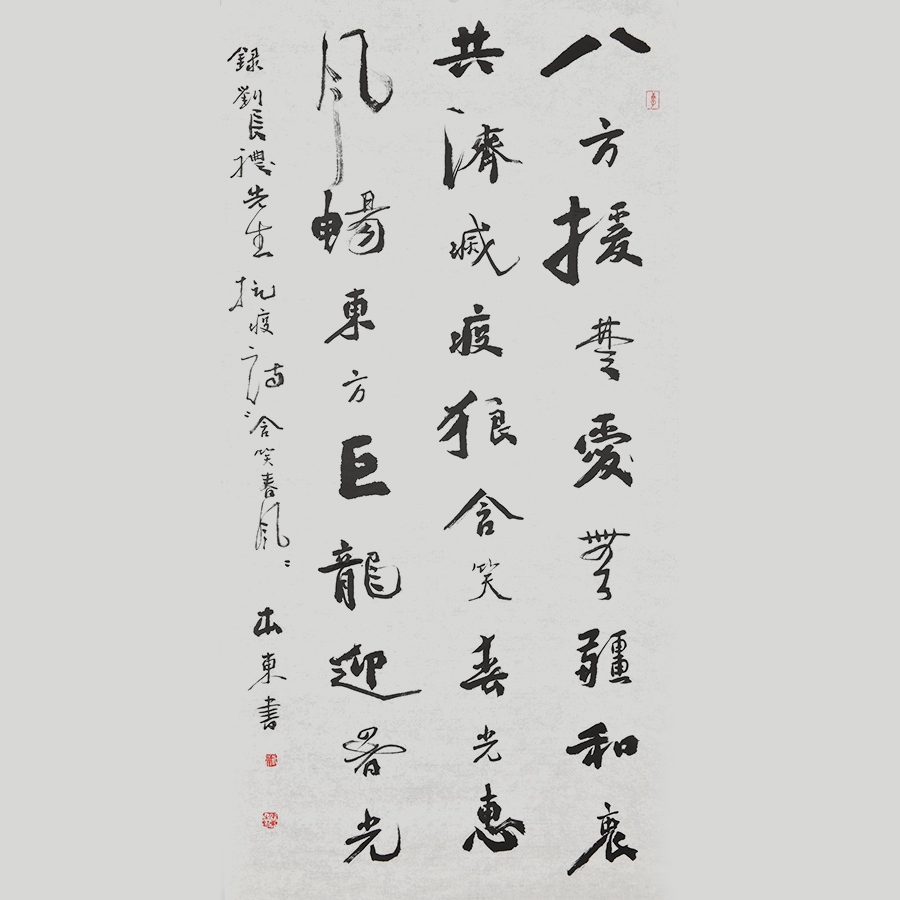 八方援楚愛無疆和衷
共濟滅疫狼含笑春光惠
風暢東方巨龍迎署光
錄劉長禮先生抗疫詩含笑春風 東書